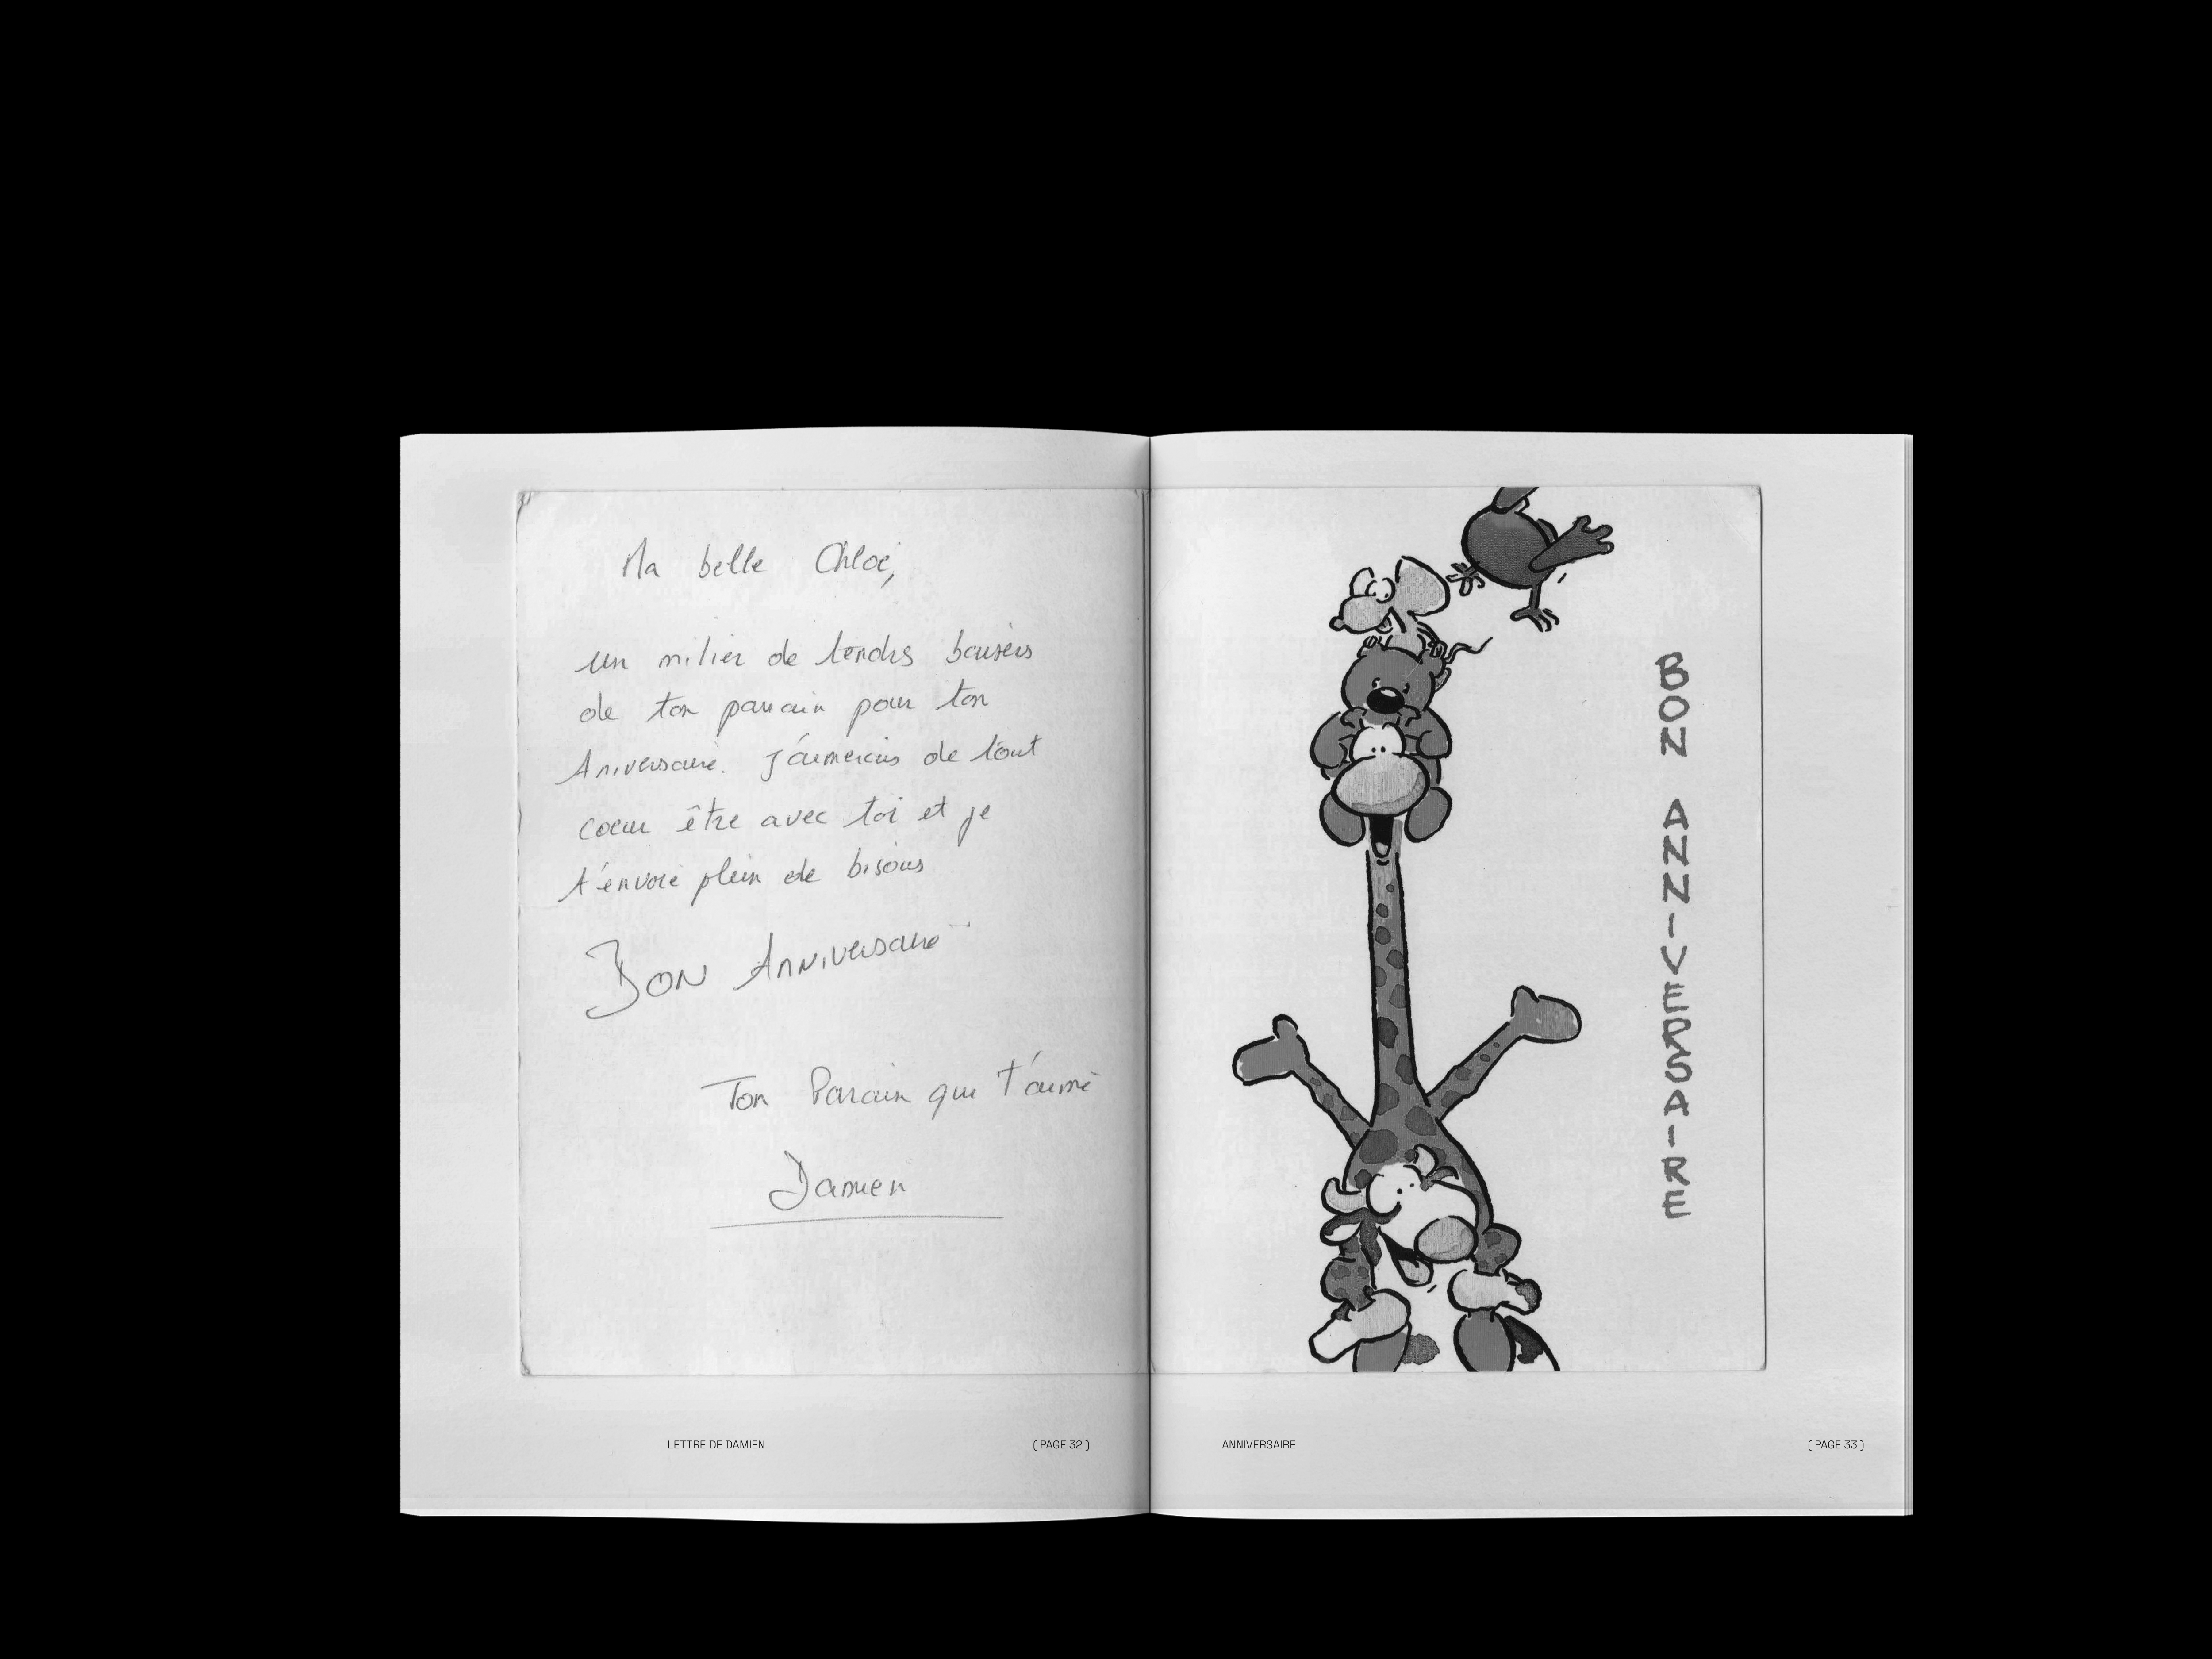 Ma belle Chloé,
un milier de tendrs baisers
de ton parrain pour ton
Aniversaire. J'aimerais de tout
coeur être avec toi et je
t'envoie plein de bisous
BON ANNIVERSAIRE
Ton Parain qui t'aime
Damien
LETTRE DE DAMIEN
( PAGE 32 )
BON ANNIVERSAIRE
ANNIVERSAIRE
( PAGE 33 )